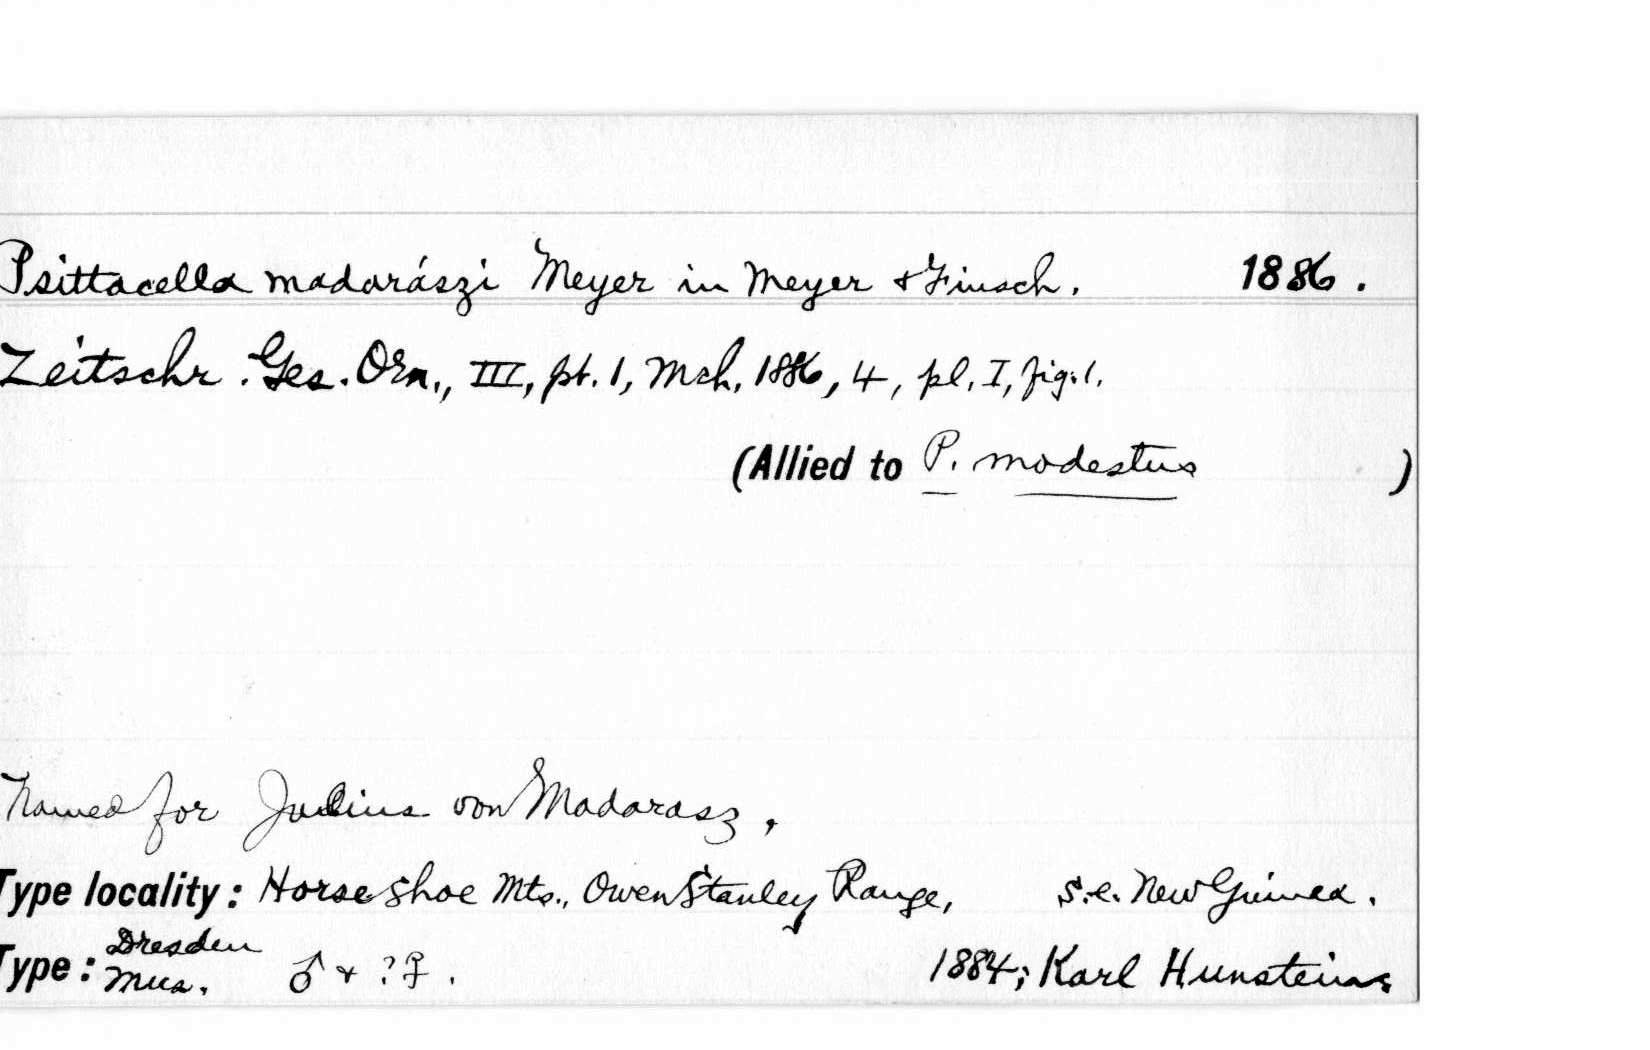 Psittacella madarászi Meyer in Meyer & Finsch. 1886.
Zeitschr. Ges. Orn., III, pt. 1, Mch. 1886, 4, pl. I, fig. 1.
(Allied to P. modestus )
Named for Julius von Madarasz,
Type locality: Horseshoe Mts., Owen Stanley Range, s.e. New Guinea.
Type: Dresden Mus. ♂ & ?♀. 1884; Karl Hunstein.